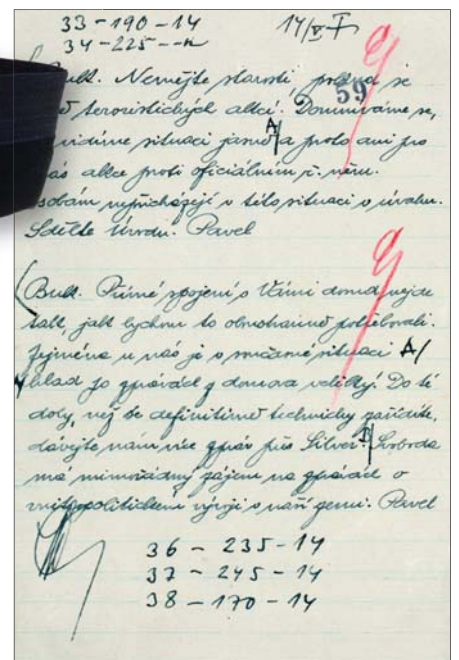 33-190-14 14/V
34-225--
Bull. Nemějte starosti,
59
teroristických akcí. Domníváme se,
vidíme situaci jasně A/ a proto ani pro
nás akce proti oficiálním ř. něm.
osobám nepřicházejí v této situaci v úvahu.
Sdělte Pavel
Přímé spojení s Vámi doma nejde
tak, jak bychom to potřebovali.
Zejména u nás je v situaci A/
hlad po zprávách z domova veliký. Do té
doby, než se definitivně technicky zařídíte,
dávejte nám více zpráv přes Silver. B/ Svoboda
má mimořádný zájem na zprávách o
vnitropolitickém vývoji v naší zemi. Pavel
36 - 235-14
37 - 245-14
38 - 170-14